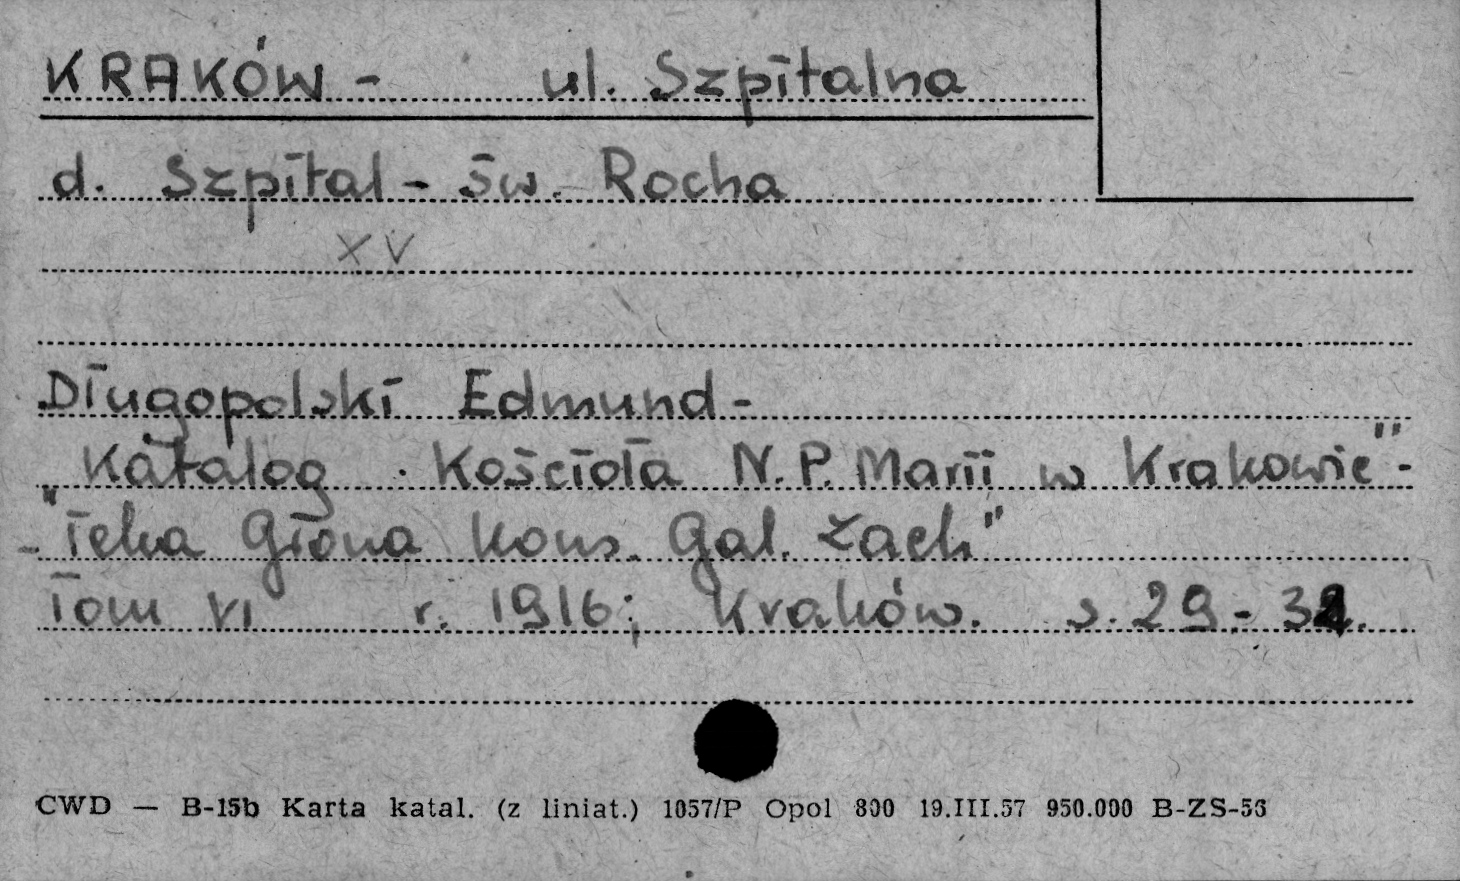 KRAKÓW - ul. Szpitalna
d. Szpital - św. Rocha
XV
Długopolski Edmund -
Katalog Kościoła N.P. Marii w Krakowie" -
- "Teka Grona Kons. Gal. Zach"
Tom VI r. 1916; Kraków. s. 29 -
CWD — B-15b Karta katal. (z liniat.) 1057/P Opol 800 19.III.57 950.000 B-ZS-56